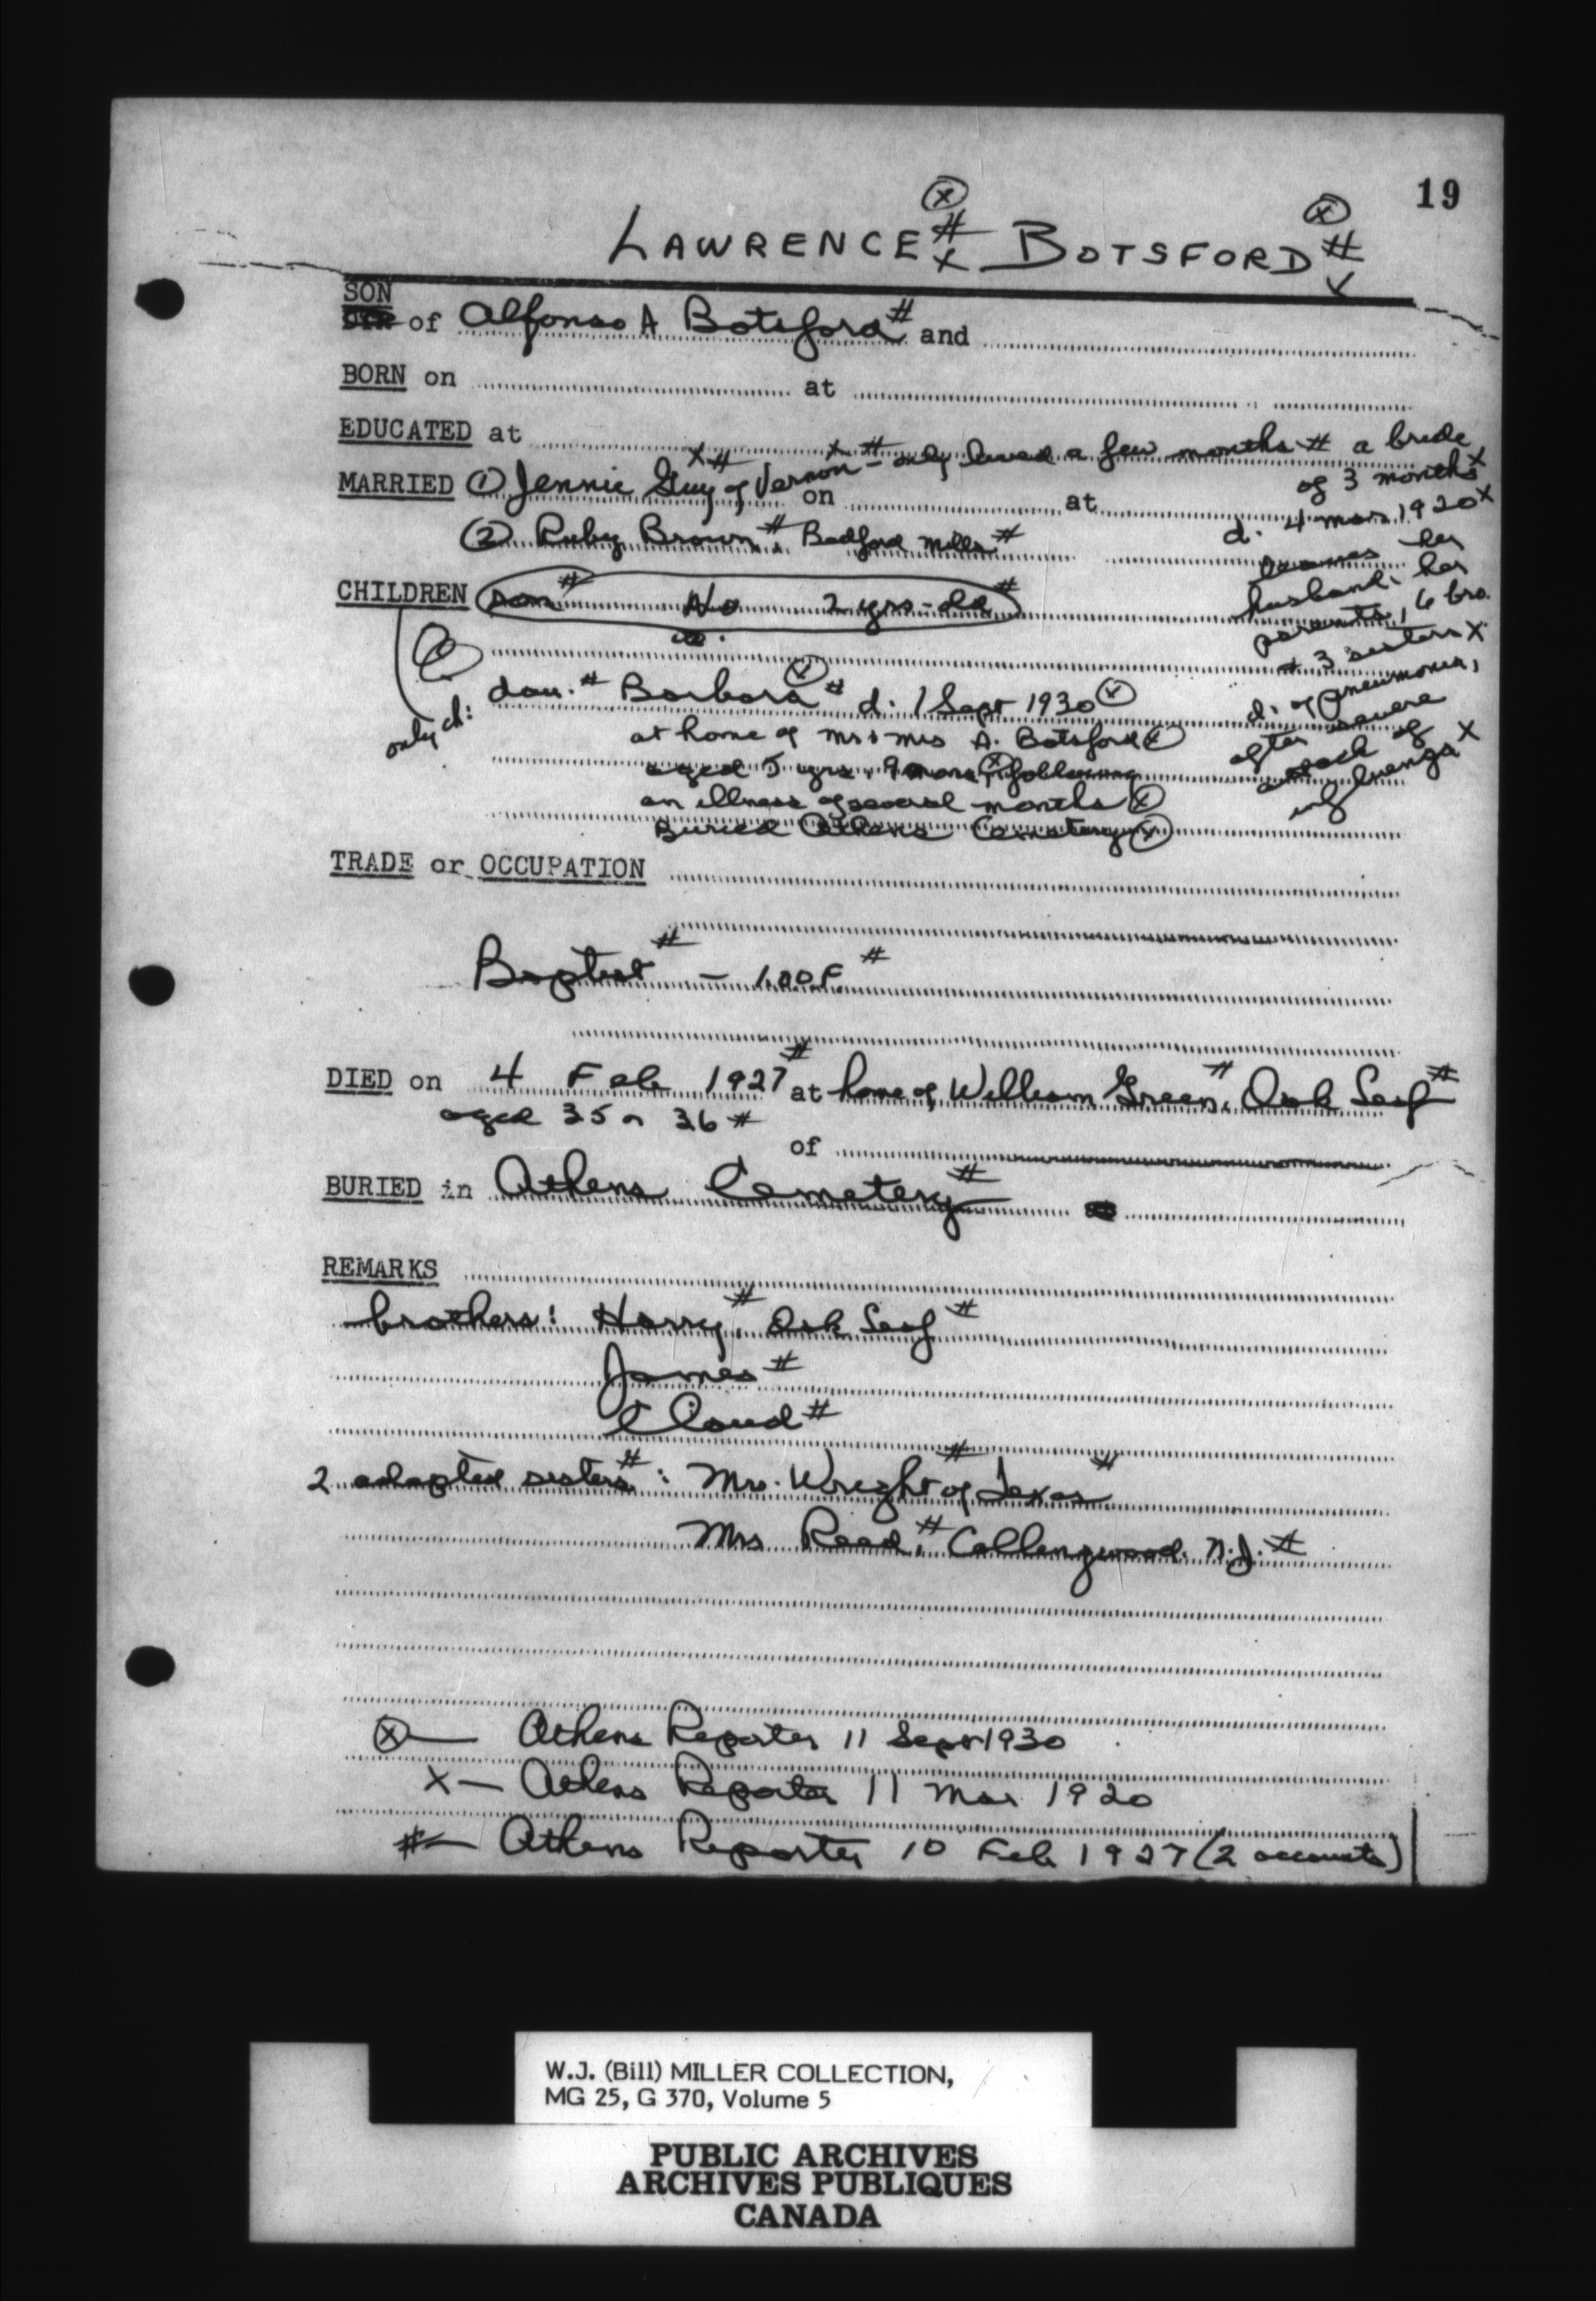 19
LAWRENCE # x BOTSFORD # x
SON of Alfonso A Botsford # and
BORN on at
EDUCATED at
MARRIED ① Jennie Guy x # of Vernon x # - only lived a few months # a bride
of 3 months x
on at
d. 4 Mar 1920 x
② Ruby Brown #, Bedford Mills #
leaves her
husband, her
parents, 6 bro.
+ 3 sisters x
d. of pneumonia,
after severe
attack of
influenza x
CHILDREN son # No 2 yrs-old #
only ch:
dau. # Barbara ⓧ # d. 1 Sept 1930 ⓧ
at home of Mr & Mrs A. Botsford ⓧ
aged 5 yrs. 9 mons ⓧ, following
an illness of several months ⓧ
Buried Athens Cemetery ⓧ
TRADE or OCCUPATION
Baptist # - I.O.O.F. #
DIED on 4 Feb 1927 # at home of William Green #, Oak Leaf #
aged 35 or 36 #
of
BURIED in Athens Cemetery #
REMARKS
brothers: Harry #, Oak Leaf #
James #
Claud #
2 adopted sisters #: Mrs. Wright # of Texas #
Mrs Reed, # Collingwood. N.J. #
ⓧ — Athens Reporter 11 Sept 1930
x — Athens Reporter 11 Mar 1920
# — Athens Reporter 10 Feb 1927 (2 accounts)
W.J. (Bill) MILLER COLLECTION,
MG 25, G 370, Volume 5
PUBLIC ARCHIVES
ARCHIVES PUBLIQUES
CANADA